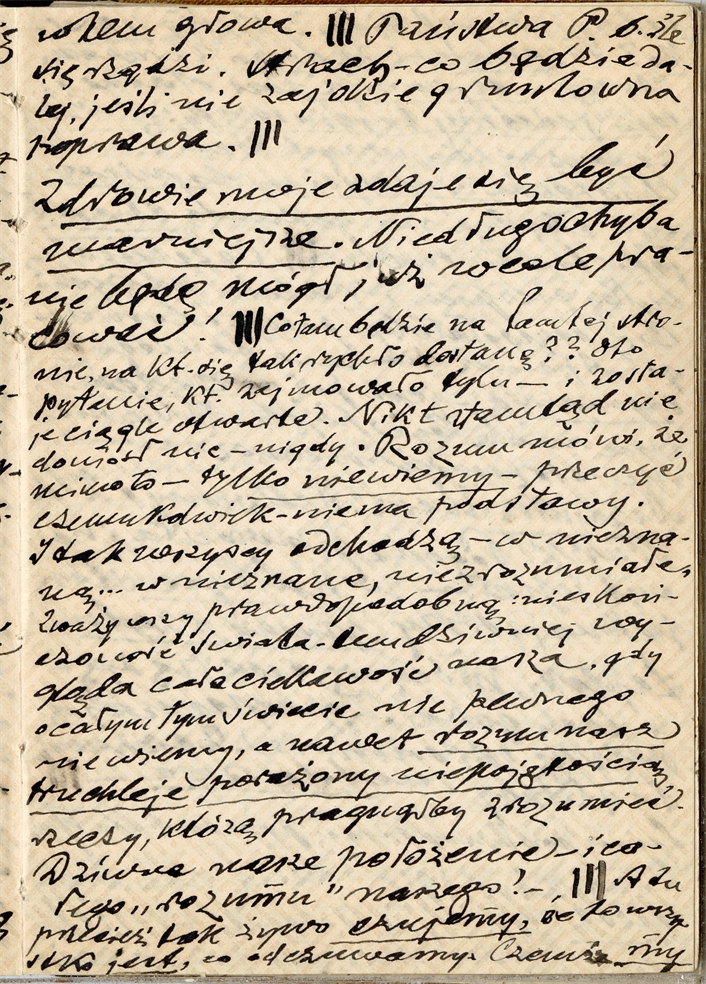 głowa. ||| Państwa P. b. źle
się rządzi. Strach – co będzie da-
lej, jeśli nie zajdzie gruntowna
poprawa. |||
Zdrowie moje zdaje się być
marniejsze. Niedługo chyba
nie będę mógł już wcale pra-
cować! ||| Co tam będzie na tamtej stro-
nie, na kt. się tak rychło dostanę?? Oto
pytanie, kt. zajmowało tylu — i zosta-
je ciągle otwarte. Nikt stamtąd nie
doniósł nic – nigdy. Rozum mówi, że
mimoto – tylko niewiemy – przeczyć
czemukolwiek – niema podstawy.
I tak wszyscy odchodzą – w niezna-
ną... w nieznane, niezrozumiałe.
Zważywszy prawdopodobną nieskoń-
czoność świata – tem dziwniej wy-
gląda cała ciekawość nasza, gdy
o całym tym świecie nic pewnego
nie wiemy, a nawet rozum nasz
truchleje porażony niepojętością
rzeczy, którą pragnąłby zrozumieć.
Dziwne nasze położenie – i ca-
łego „rozumu" naszego! – ||| A tu
przecież tak żywo czujemy, że to wszy-
stko jest, co odczuwamy. Czemże my